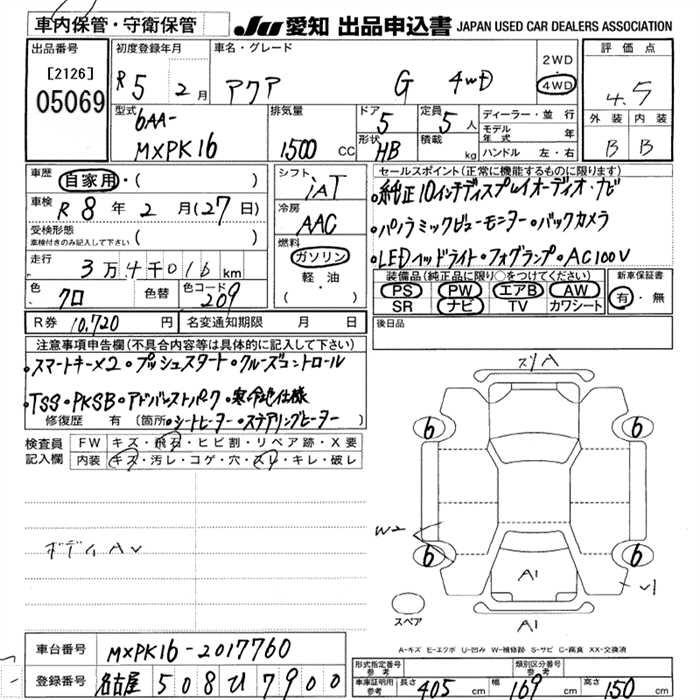 車内保管・守衛保管
JU 愛知 出品申込書 JAPAN USED CAR DEALERS ASSOCIATION
出品番号
[2126]
05069
初度登録年月
R5 2月
車名・グレード
アクア G 4WD
2WD
4WD
評価点
4.5
外装 内装
B B
型式
6AA-
MXPK16
排気量
1500 CC
ドア
5
形状
HB
定員
5人
積載
kg
ディーラー・並行
モデル年式 年
ハンドル 左・右
車歴 自家用・( )
車検 R8年2月(27日)
受検形態
車検付きのみ記入して下さい ( )
走行 3万4千016km
色 クロ
色替
色コード
209
R券 10,720円
名変通知期限 月 日
シフト
iAT
冷房
AAC
燃料
ガソリン
軽・油
( )
セールスポイント(正常に機能するものに限ります)
・純正10インチディスプレイオーディオ・ナビ
・パノラミックビューモニター・バックカメラ
・LEDヘッドライト・フォグランプ・AC100V
装備品(純正品に限り○をつけてください)
PS PW エアB AW
SR ナビ TV カワシート
新車保証書
有・無
後日品
注意事項申告欄(不具合内容等は具体的に記入して下さい)
・スマートキー×2・プッシュスタート・クルーズコントロール
・TSS・PKSB・アドバンストパーク・寒冷地仕様
修復歴 有 〔箇所 ・シートヒーター・ステアリングヒーター 〕
検査員記入欄
FW キズ・飛石・ヒビ割・リペア跡・X要
内装 キズ・汚レ・コゲ・穴・スレ・キレ・破レ
ボディAV
スリA
6 6
W2
6 6
A1
V1
A1
スペア
A-キズ E-エクボ U-凹み W-補修跡 S-サビ C-腐食 XX-交換済
車台番号 MXPK16-2017760
登録番号 名古屋 508 ひ 7900
形式指定番号 参考
類別区分番号 参考
車庫証明用 参考
長さ 405 cm
幅 169 cm
高さ 150 cm